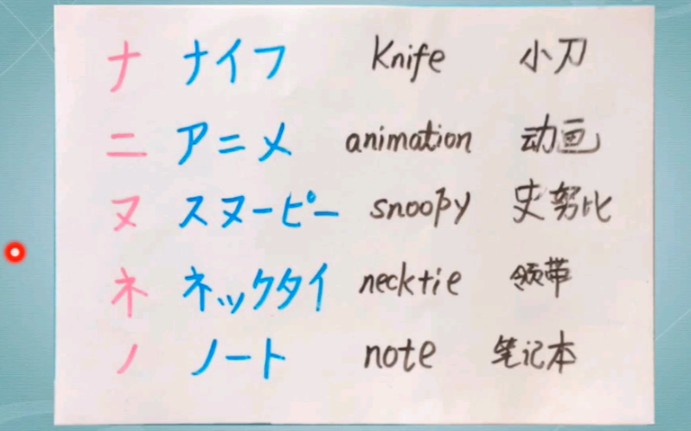 ナ ナイフ Knife 小刀
ニ アニメ animation 动画
ヌ スヌーピー snoopy 史努比
ネ ネックタイ necktie 领带
ノ ノート note 笔记本